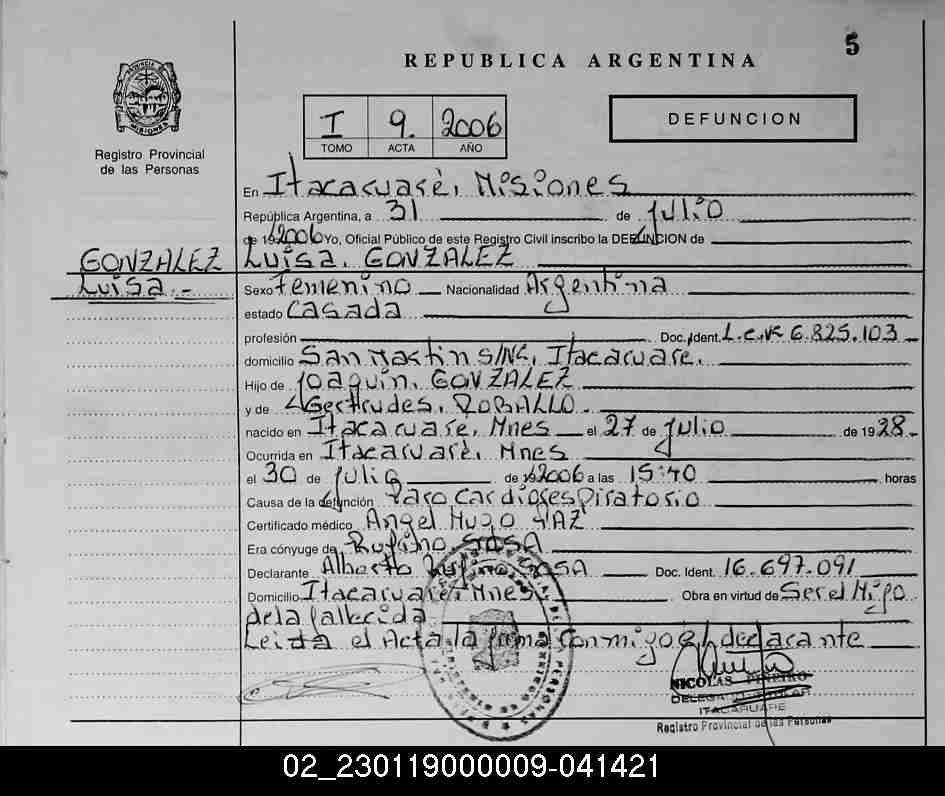 5
REPUBLICA ARGENTINA
PROVINCIA DE MISIONES
Registro Provincial
de las Personas
I 9. 2006
TOMO ACTA AÑO
DEFUNCION
En Itacaruaré, Misiones
República Argentina, a 31 de Julio
de 19 2006 Yo, Oficial Público de este Registro Civil inscribo la DEFUNCION de
GONZALEZ Luisa. GONZALEZ
Luisa.-
Sexo Femenino Nacionalidad Argentina
estado Casada
profesión Doc. Ident. L.C.Nº 6.825.103
domicilio San Martin S/Nº, Itacaruare.
Hijo de Joaquin. GONZALEZ
y de Gertrudes. ROBALLO.
nacido en Itacaruare, Mnes el 27 de Julio de 1928-
Ocurrida en Itacaruaré, Mnes
el 30 de Julio de 19 2006 a las 15:40 horas
Causa de la defunción Paro Cardiorespiratorio
Certificado médico Angel Hugo VAZ
Era cónyuge de Rufino SOSA
Declarante Alberto Rufino SOSA Doc. Ident. 16.697.091
Domicilio Itacaruaré, Mnes Obra en virtud de Ser el Hijo
de la fallecida
Leida el Acta la firma Conmigo el declarante
NICOLAS PIÑEIRO
DELEGADO TITULAR
ITACARUARE
Registro Provincial de las Personas
02_230119000009-041421